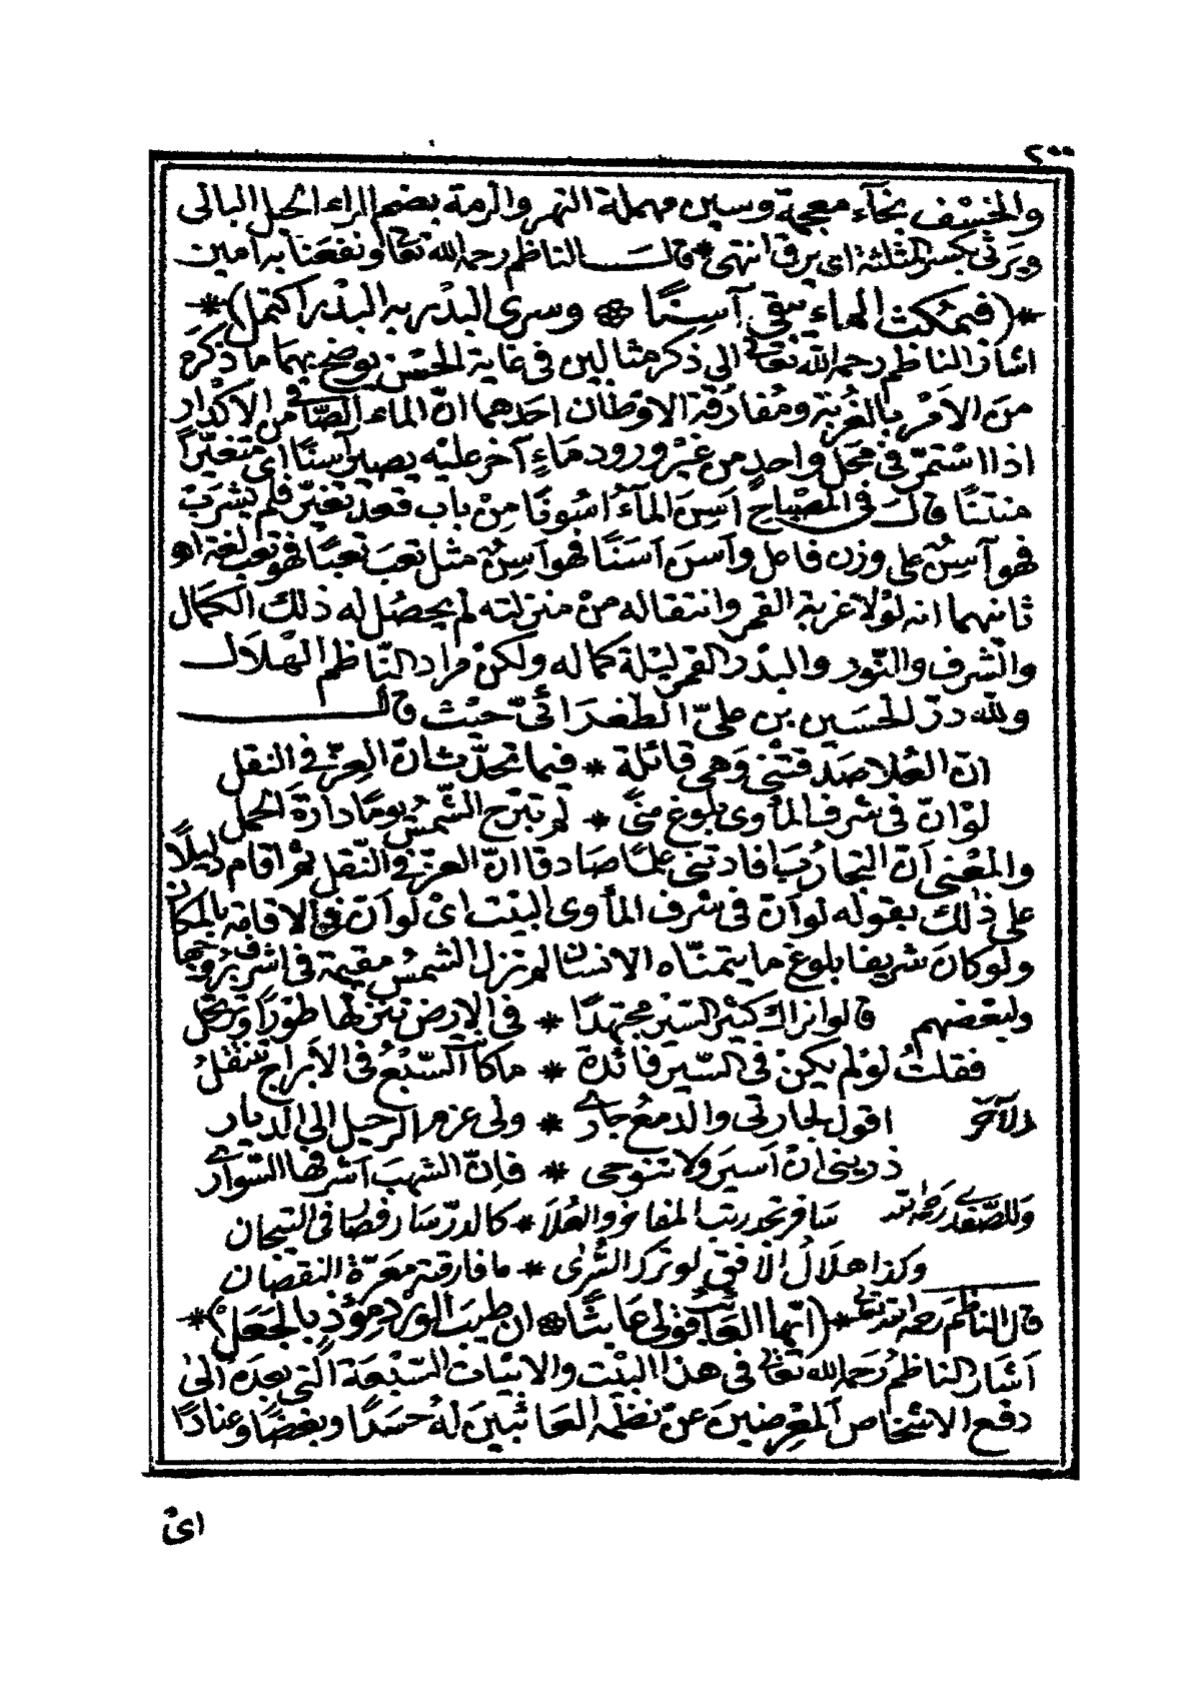 ٢٠٠
والخسف بخآء معجمة وسين مهملة النهر والرمة بضم الراء الحبل البالى
ويرثى بكسر المثلثة اى يرق انتهى * قال الناظم رحمه الله تعالى ونفعنا به امين
*(فبمكث الماء يبقى آسِنًا ۞ وسرى البدر به البدر اكتمل)*
اشار الناظم رحمه الله تعالى الى ذكر مثالين فى غاية الحُسْن يوضح بهما ما ذكره
منَ الاَمْر بالغُربَة ومُفارَقة الاوْطان احَدهما انّ الماء الصّافى من الاكْدار
اذا اسْتمرّ فى مَحَلّ واحدٍ من غيْر ورود مَاءٍ آخر عليْه يصير آسنًا اى متغيّرًا
منتنًا قال فى المصْباح اَسِنَ المآءُ اسُونًا مِنْ باب قعد تغيّر فلم يشرَبْ
فهو آسِنٌ على وزن فاعل وأسنَ اَسَنًا فهو اَسِنٌ مثل تعبَ تعَبًا فهو تعب لغة اهـ
ثانيهما انه لوْلا غربة القمر وانتقاله منْ منزلته لم يحصُل له ذلك الكمال
والشرف والنّور والبدْر القمر ليْلة كماله ولكنْ مراد النّاظم الهْلاَل
ولله درّ الحُسَين بن علىّ الطغرَائىّ حيْث قال
انّ العُلا صَدَقتْنى وَهى قائلة * فيما تحدّث انّ العِزّ فى النقل
لوْ انّ فى شرف المأوى بلوغ منًى * لم تبْرح الشّمسُ يومًا دارَة الحَمل
والمعْنى اَنّ التجارُبَ افادتنى علمًا صَادقا انّ العزّ فى النّقل ثمّ اقام دليلاً
على ذٰلك بقوله لو اَنّ فى شرف المأوى البيْت اىْ لو اَنّ فى الاقامَة بالمكان
ولو كانَ شريفا بلوغ ما يتمنّاه الانسَان لم تزل الشمسُ مقيمَة فى اشرف بُروجها
ولبَعْضهم قالوا نراك كثير السّيْر مجتهدًا * فى الارض تنزلها طوْرًا وترْتحَل
فقلتُ لوْ لم يكنْ فى السّير فائدة * ما كانت السّبْعُ فى الاَبراج تنتقلُ
ولآخَر اقول لجارتى والدمعُ جارى * ولى عزم الرحيل الى الديار
ذرينى انْ اَسيرَ ولا تنوحى * فاِنّ الشهبَ اَشرفها السّوارى
وَللصّفدى رَحمَه الله سَافر تجد رتب المفاخر والعُلاَ * كالدرّ سَار فصَار فى التيجان
وكذا هلاَلُ الاُفق لو ترك السُّرٰى * ما فارقته معَرّة النقصَان
قال الناظم رحمه الله تعالى *(ايّها العَائبُ قولى عَابثًا ۞ ان طيبَ الورْد مؤذٍ بالجَعَلْ)*
اَشَار الناظمُ رَحمَه الله تعَالى فى هذا البيْت والابْيات السّبْعَة الّتى بعدهَ الىٰ
دفع الاشخاص المعْرِضينَ عنْ نظمِه العَائبينَ لهُ حسَدًا وبغضًا وعنادًا
اىْ